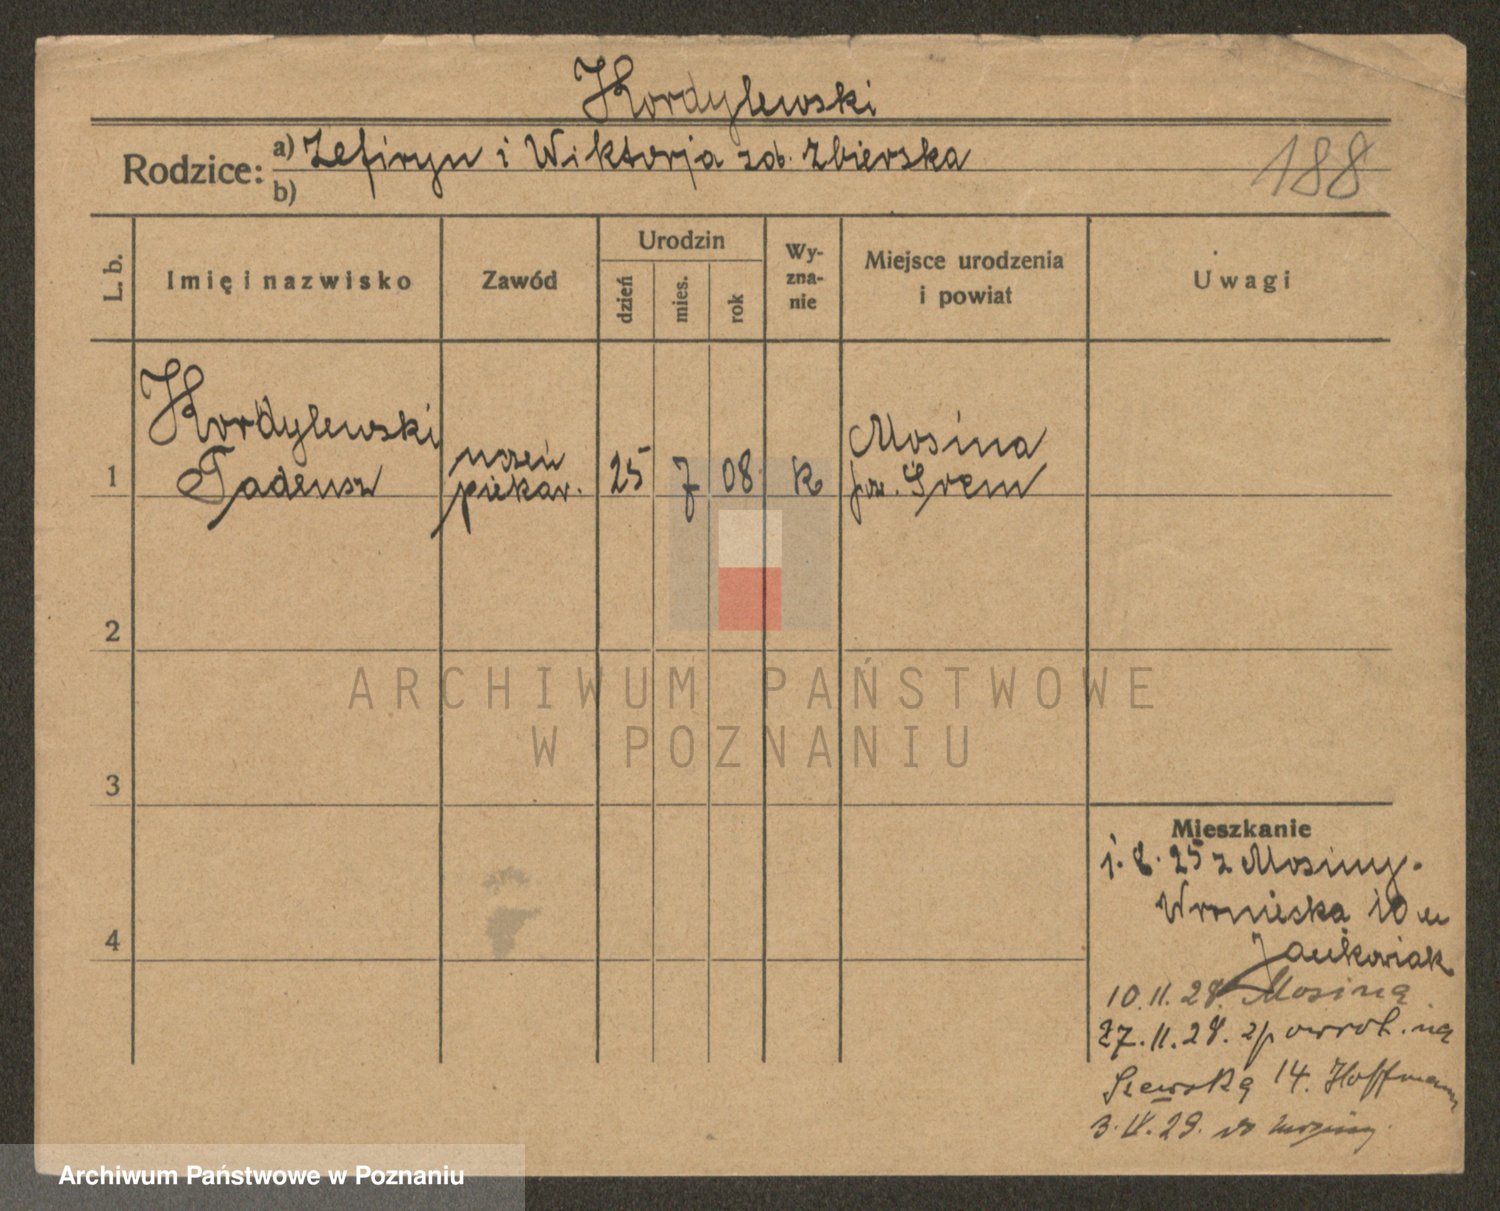 Kordylewski
Rodzice: a) Zefiryn i Wiktorja zd. Zbierska
b)
188
L. b.
Imię i nazwisko
Zawód
Urodzin
dzień
mies.
rok
Wy-
zna-
nie
Miejsce urodzenia
i powiat
Uwagi
1
Kordylewski
Tadeusz
uczeń
piekar.
25
7
08
k
Mosina
pow. Śrem
2
3
4
Mieszkanie
1. 8. 25 z Mosiny.
Wroniecka 10 u
Jankowiak
10.11.28. Mosina
27.11.28. zpowrot. na
Szewską 14. Hoffmann
3.IV.29. do Mosiny
ARCHIWUM PAŃSTWOWE
W POZNANIU
Archiwum Państwowe w Poznaniu